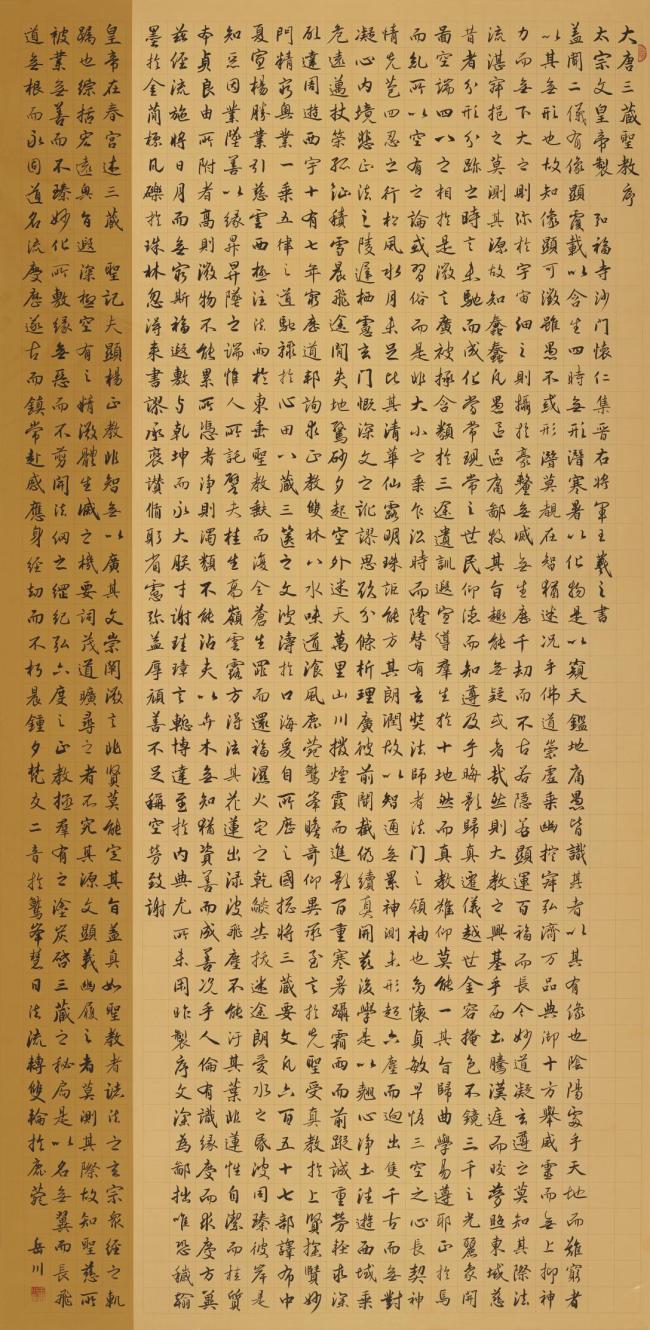 大唐三藏聖教序
太宗文皇帝製 弘福寺沙门懷仁集晉右將軍王羲之書
蓋聞二儀有像顯覆載以含生四時無形潛寒暑以化物是以窺天鑑地庸愚皆識其者以其有像也陰陽處乎天地而難窮者
以其無形也故知像顯可徵雖愚不或形潛莫覩在智猶迷況乎佛道崇虛乘幽控寂弘濟万品典御十方舉威靈而無上抑神
力而無下大之則弥於宇宙細之則攝於豪釐無滅無生歷千劫而不古若隱若顯運百福而長今妙道凝玄遵之莫知其際法
流湛寂挹之莫測其源故知蠢蠢凡愚區區庸鄙投其旨趣能無疑或者哉然則大教之興基乎西土騰漢庭而皎夢照東域慈
昔者分形分跡之時言未馳而成化當常現常之世民仰德而知遵及乎晦影歸真遷儀越世金容掩色不鏡三千之光麗象開
啚空端四八之相於是微言廣被拯含類於三途遺訓遐宣導羣生於十地然而真教難仰莫能一其旨歸曲學易遵耶正於焉
而乱所以空有之論或習俗而是非大小之乘乍沿時而隆替有玄奘法師者法門之領袖也幼懷貞敏早悟三空之心長契神
情先苞四忍之行松風水月未足比其清華仙露明珠詎能方其朗潤故以智通無累神測未形超六塵而迥出隻千古而無對
凝心內境悲正法之陵遲栖慮玄門慨深文之訛謬思欲分條析理廣彼前聞截偽續真開茲後學是以翹心淨土往遊西域乘
危遠邁杖策孤征積雪晨飛途閒失地驚砂夕起空外迷天萬里山川撥煙霞而進影百重寒暑躡霜雨而前蹤誠重勞輕求深
願達周遊西宇十有七年窮歷道邦詢求正教雙林八水味道飡風鹿菀鷲峯瞻奇仰異承至言於先聖受真教於上賢探賾妙
門精窮奧業一乘五律之道馳驟於心田八藏三篋之文波濤於口海爰自所歷之國揔將三藏要文凡六百五十七部譯布中
夏宣楊勝業引慈雲西極注法雨於東垂聖教缺而復全蒼生罪而還福濕火宅之乾燄共拔迷途朗愛水之昏波同臻彼岸是
知惡因業墜善以緣昇昇墜之端惟人所託譬夫桂生高嶺雲露方得泫其花蓮出淥波飛塵不能汙其葉非蓮性自潔而桂質
本貞良由所附者高則微物不能累所憑者淨則濁類不能沾夫以卉木無知猶資善而成善況乎人倫有識緣慶而求慶方冀
茲經流施將日月而無窮斯福遐敷与乾坤而永大朕才謝珪璋言慚博達至於內典尤所未閑昨製序文深為鄙拙唯恐穢翰
墨於金簡標瓦礫於珠林忽得来書謬承褒讚循躬省慮弥益厚顏善不足稱空勞致謝
皇帝在春宮述三藏 聖記夫顯楊正教非智無以廣其文崇闡微言非賢莫能定其旨蓋真如聖教者諸法之玄宗衆經之軌
躅也綜括宏遠奧旨遐深極空有之精微體生滅之機要詞茂道曠尋之者不究其源文顯義幽履之者莫測其際故知聖慈所
被業無善而不臻妙化所敷緣無惡而不剪開法網之綱紀弘六度之正教拯羣有之塗炭啓三藏之秘扃是以名無翼而長飛
道無根而永固道名流慶歷遂古而鎮常赴感應身經劫而不朽晨鍾夕梵交二音於鷲峯慧日法流轉雙輪於鹿菀 岳川